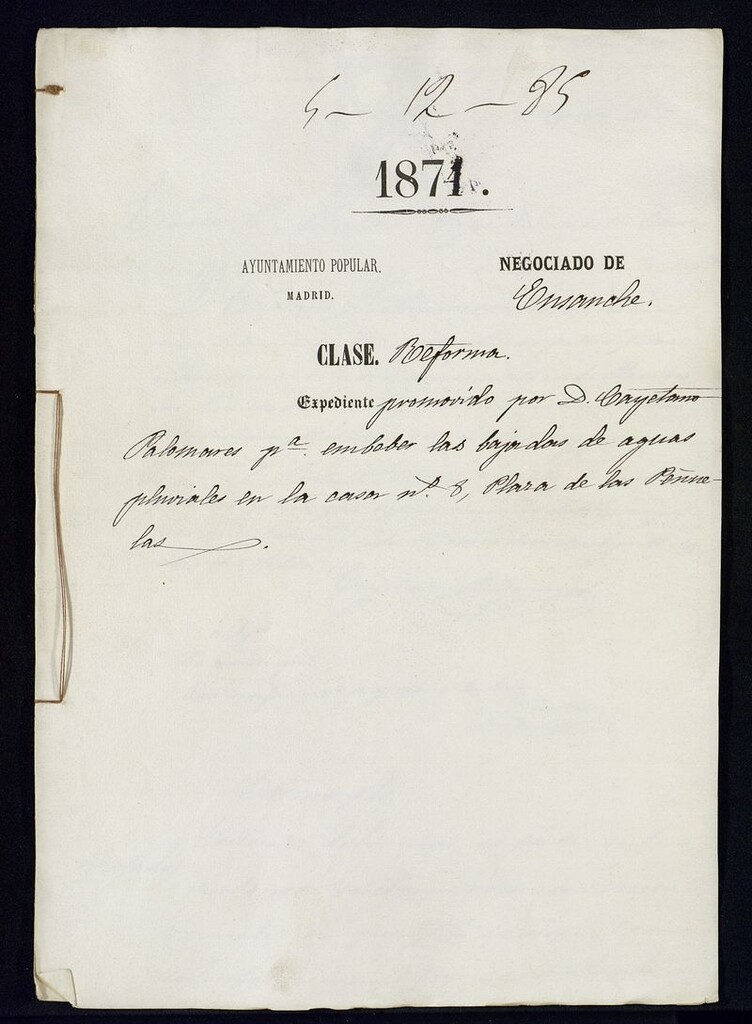 5 - 12 - 85
1871.
AYUNTAMIENTO POPULAR.
MADRID.
NEGOCIADO DE
Ensanche.
CLASE. Reforma.
Expediente promovido por D. Cayetano
Palomares pª. embeber las bajadas de aguas
pluviales en la casa nº. 8, Plaza de las Peñue-
las.